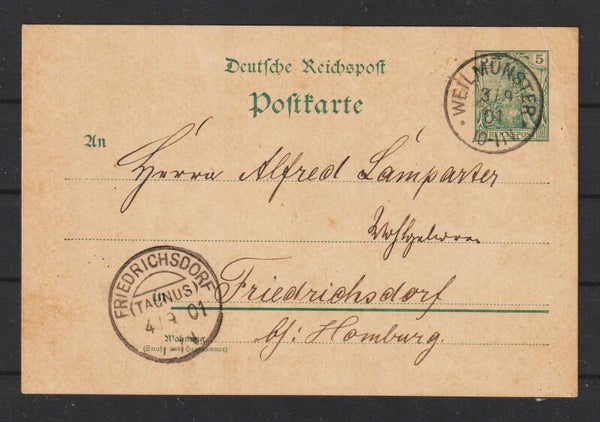 Deutsche Reichspost
5
Postkarte
WEILMÜNSTER
3/9
01
10-11V
REICHSPOST
An
Herrn Alfred Lamparter
Wohlgeboren
FRIEDRICHSDORF
(TAUNUS)
4/9 01
in
Friedrichsdorf
Wohnung
(Straße und Hausnummer)
b/. Homburg.